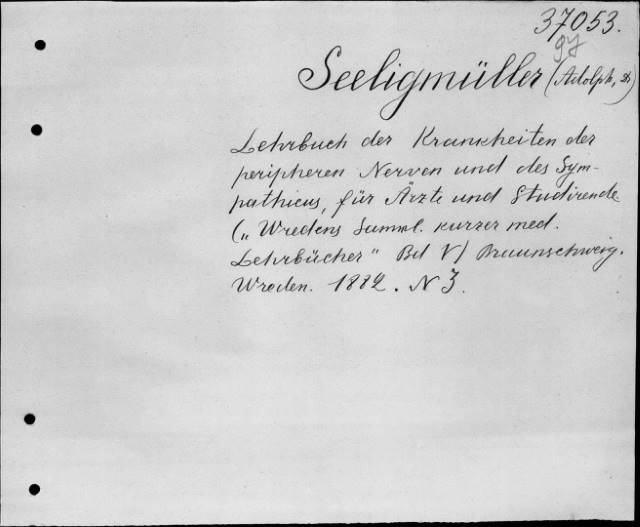 37053.
97
Seeligmüller (Adolph, Dr)
Lehrbuch der Krankheiten der
peripheren Nerven und des Sym-
pathicus, für Ärzte und Studirende
(„Wredens Samml. kurzer med.
Lehrbücher" Bd V) Braunschweig.
Wreden. 1882. N 3.